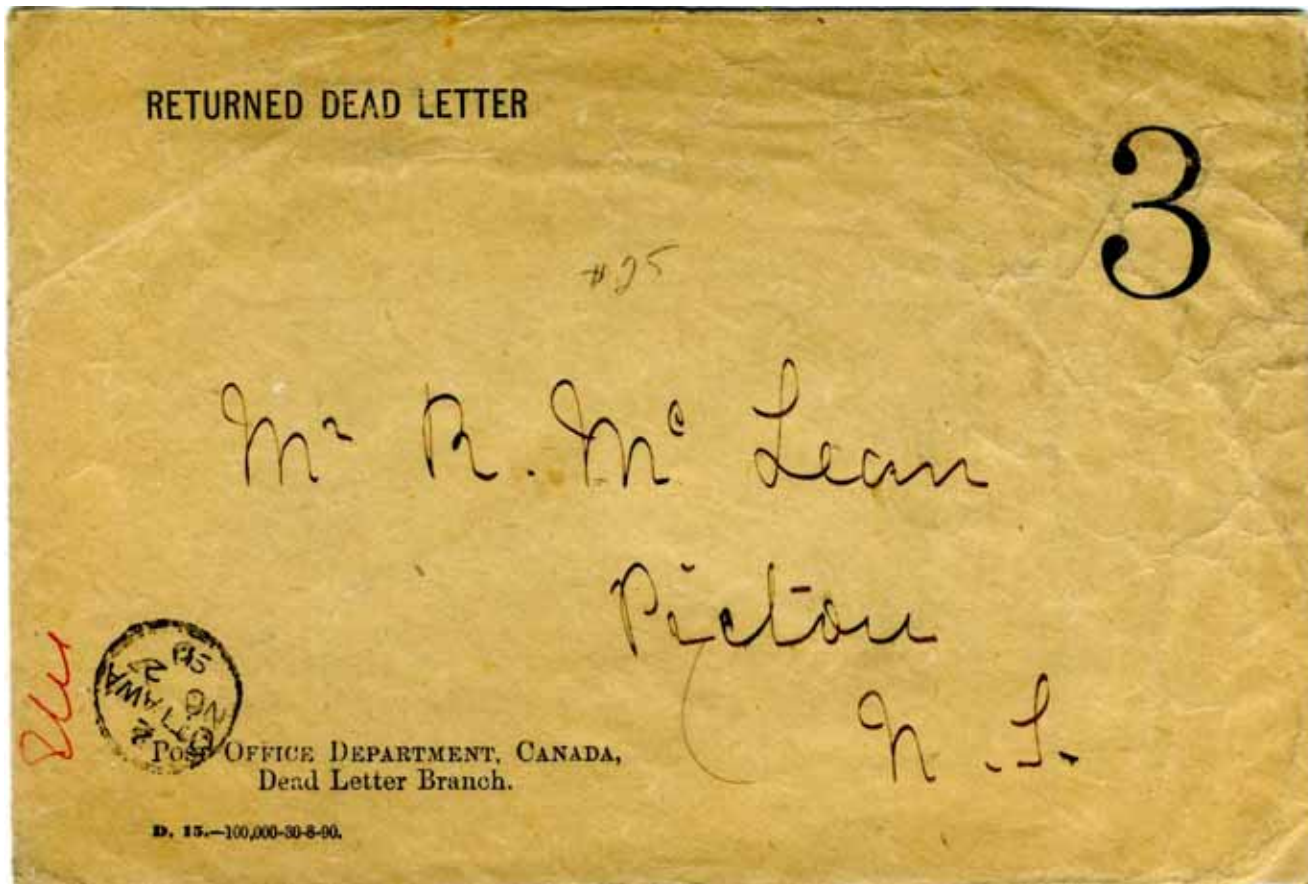 RETURNED DEAD LETTER
3
#25
Mr R. Mc Lean
Pictou
N.S.
OTTAWA
NO 2
POST OFFICE DEPARTMENT, CANADA,
Dead Letter Branch.
D. 15.—100,000-30-8-90.